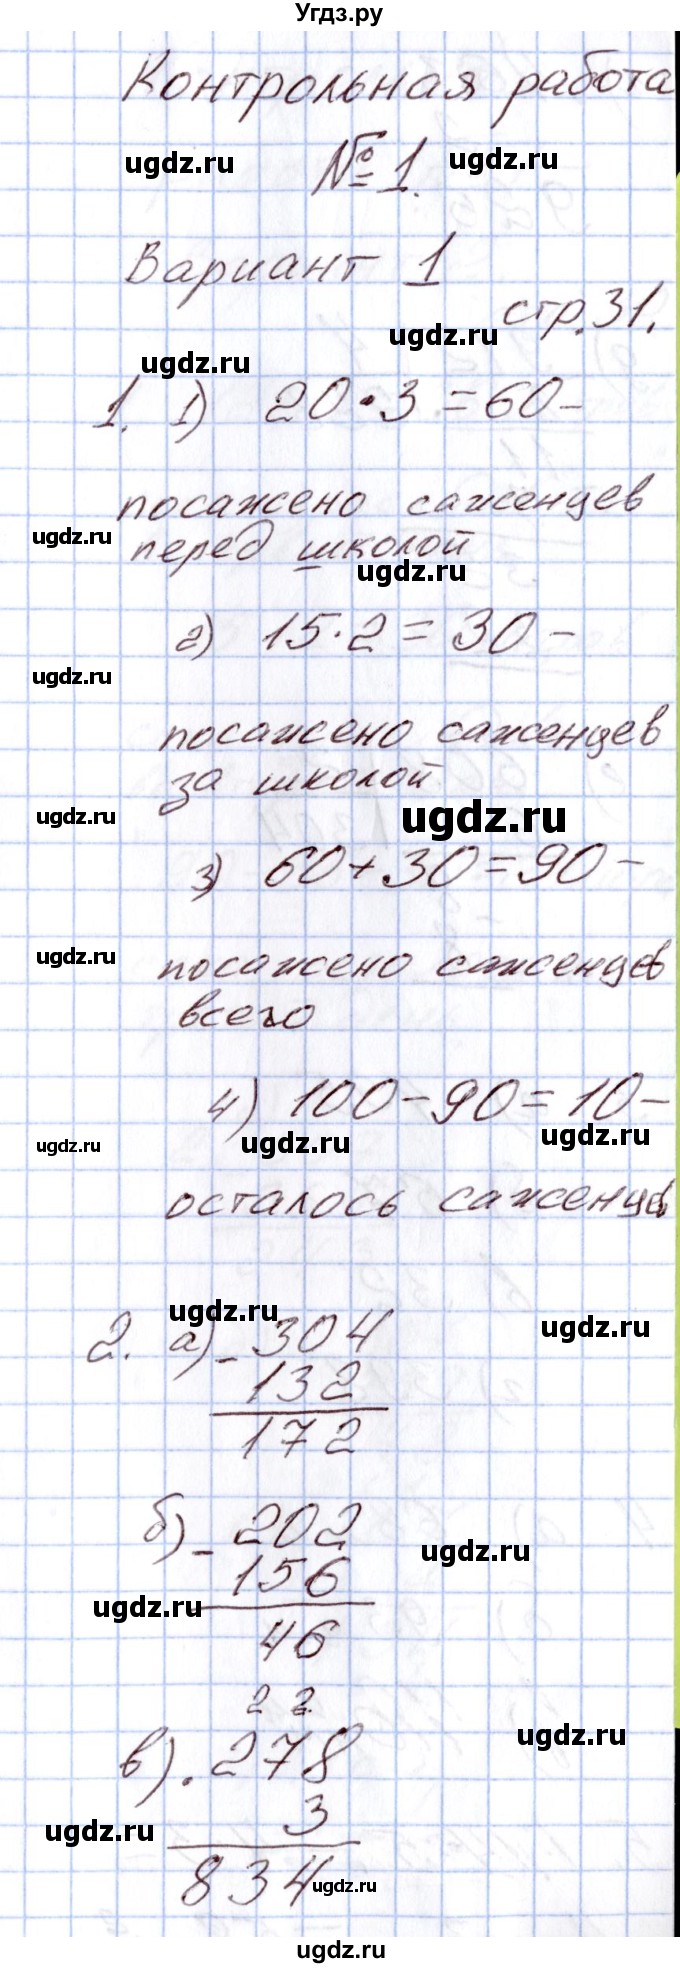 Угдз.ру
Контрольная работа
ugdz.ru
№ 1.
ugdz.ru
Вариант 1
стр.31.
ugdz.ru
ugdz.ru
1. 1) 20·3=60-
посажено саженцев
ugdz.ru
перед школой
ugdz.ru
2) 15·2=30-
ugdz.ru
посажено саженцев
за школой
ugdz.ru
ugdz.ru
3) 60+30=90-
ugdz.ru
посажено саженцев
всего
4) 100-90=10-
ugdz.ru
ugdz.ru
ugdz.ru
осталось саженцев
ugdz.ru
ugdz.ru
2. а) - 304
132
172
б) - 202
ugdz.ru
156
ugdz.ru
46
2 2
ugdz.ru
в) · 278
ugdz.ru
3
834
ugdz.ru
ugdz.ru